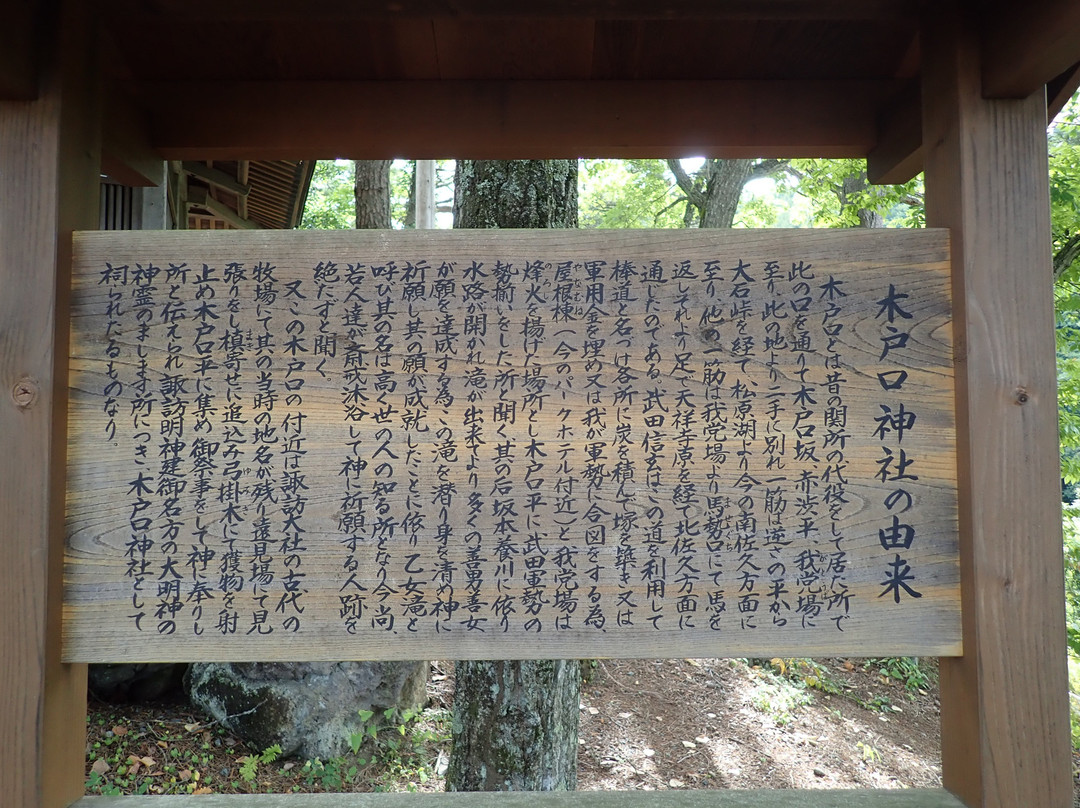 木戸口神社の由来
木戸口とは昔の関所の代役をして居た所で
此の口を通りて木戸口坂、赤渋平、我党場に
至り此の地より二手に別れ一筋は逆さの平から
大石峠を経て、松原湖より今の南佐久方面に
至り、他の一筋は我党場より馬勢口にて馬を
返しそれより足で天祥寺原を経て北佐久方面に
通じたのである。武田信玄はこの道を利用して
棒道と名づけ各所に炭を積んで塚を築き又は
軍用金を埋め又は我が軍勢に合図をする為、
屋根棟（今のパークホテル付近）と我党場は
烽火を揚げた場所とし木戸口平に武田軍勢の
勢揃いをした所と聞く其の后坂本養川に依り
水路が開かれ滝が出来てより多くの善男善女
が願を達成する為この滝を潜り身を清め神に
祈願し其の願が成就したことに依り乙女滝と
呼び其の名は高く世の人の知る所となり今尚、
若人達が斎戒沐浴して神に祈願する人跡を
絶たずと聞く。
又この木戸口の付近は諏訪大社の古代の
牧場にて其の当時の地名が残り遠見場にて見
張りをし槙寄せに追込み弓掛木にて獲物を射
止め木戸口平に集め御祭事をして神に奉りし
所と伝えられ諏訪明神建御名方の大明神の
神霊のまします所につき木戸口神社として
祠られたるものなり。